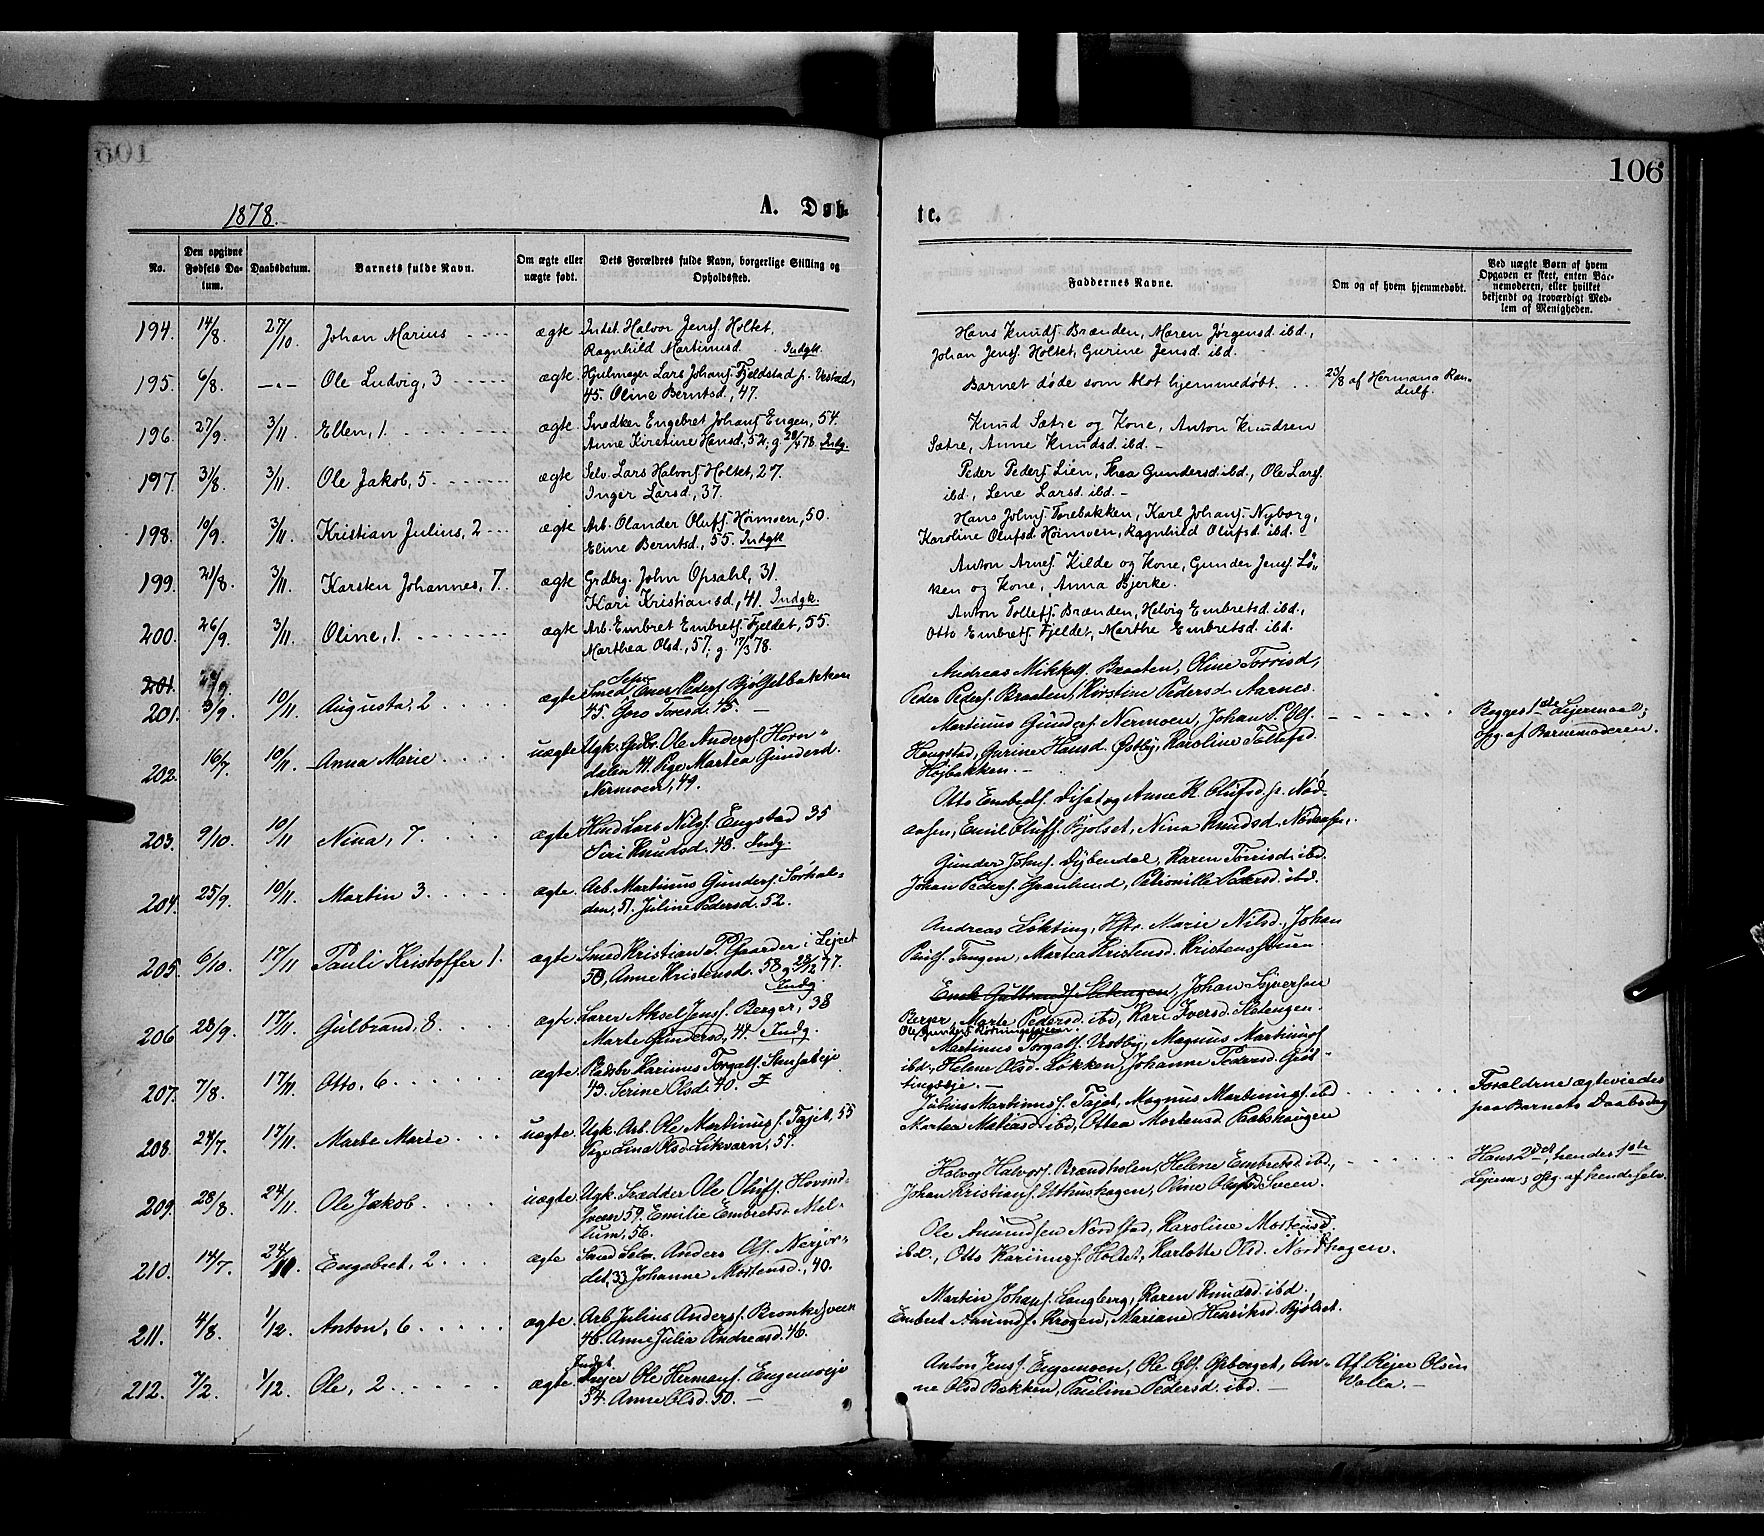 106
1878.
A. Døb-
te.
No.
Den opgivne Fødsels Datum.
Daabsdatum.
Barnets fulde Navn.
Om ægte eller uægte født.
Dets Forældres fulde Navn, borgerlige Stilling og Opholdssted.
Faddernes Navne.
Om og af hvem hjemmedøbt.
Ved uægte Børn af hvem Opgaven er skeet, enten Barnemoderen, eller hvilket bekjendt og troværdigt Medlem af Menigheden.
194. 14/8. 27/10 Johan Marius ægte Indst. Halvor Jensf. Holtet,
Ragnhild Martinusd. Indgk.
Hans Knudsf. Brænden, Maren Jørgensd. ibd.,
Johan Jensf. Holtet, Gurine Jensd. ibd.
195. 6/8. -"- Ole Ludvig, 3 ægte Hjulmager Lars Johansf. Fjeldstad p. Vestad,
45. Oline Berntsd., 47.
Barnet døde som blot hjemmedøbt. 23/8 af Hermana Ran-
dulf.
196. 27/9. 3/11. Ellen, 1. ægte Snedker Engebret Johansf. Engen, 54.
Anne Kirstine Hansd., 52, g. 78. Indg.
Knud Sætre og Kone, Anton Knudsen
Sætre, Anne Knudsd. ibd. -
197. 31/8. 3/11. Ole Jakob, 5 ægte Selv. Lars Halvorsf. Holtet, 27.
Inger Larsd., 37.
Peder Pedersf. Lien, Thea Gundersd. ibd., Ole Larsf.
ibd., Lene Larsd. ibd. -
198. 10/9. 3/11. Kristian Julius, 2 ægte Arb. Olander Olufsf. Hørmoen, 50.
Eline Berntsd., 55. Indgk
Hans Johnsf. Torebakken, Karl Johansf. Nyborg,
Karoline Olufsd. Hørmoen, Ragnhild Olufsd. ibd.
199. 21/8. 3/11. Karsten Johannes, 7. ægte Grdbrg. John Opsahl, 31.
Kari Kristiansd., 41. Indgk.
Anton Arnesf. Kilde og Kone, Gunder Jensf. Lø-
ken og Kone, Anna Bjerke.
200. 26/9. 3/11. Oline, 1. ægte Arb. Embret Embretsf. Fjeldet, 55.
Marthea Olsd., 57, g. 17/3 78.
Anton Tollefsf. Brænden, Helvig Embretsd. ibd.,
Otto Embretsf. Fjeldet, Marthe Embretsd. ibd.
201.
201. 9/9. 10/11. Augusta, 2 ægte Smed Pedersf. Bjølsetbakken
45. Goro Toresd. 45. -
Andreas Mikkelsf. Braaten, Oline Torrisd,
Peder Pedersf. Braaten, Kirstine Pedersd Aarnes.
202. 16/7. 10/11. Anna Marie uægte Ugk. Gdbr. Ole Andersf. Horn-
dalen 41. Pige Martea Gundersd.
Nermoen, 49.
Martinus Gundersf. Nermoen, Johan P. Olsf.
Haugstad, Gurine Hansd. Østby, Karoline Tollefsd.
Højbakken. -
Begges 1ste Lejermaal;
opg. af Barnemoderen.
203. 9/10. 10/11 Nina, 7. ægte Lars Nilsf. Engstad 35
Siri Knudsd. 48. Indg.
Otto Embretsf. og Anne K. Olufsd. p. Nød-
aasen, Emil Olufsf. Bjølset, Nina Knudsd. Nødaasen.
204. 25/9. 10/11. Martin 3. ægte. Arb. Martinus Gundersf. Sørhal-
den, 51. Juline Pedersd. 52.
Gunder Johnsf. Dybendal, Karen Torrisd. ibd.
Johan Pedersf. Granlund, Petionille Pedersd. ibd.
205. 6/10. 17/11 Pauli Kristoffer 1. ægte Smed Kristian P. Gaarder i Lejret
58, Anne Kristensd. 58 g. 28/12 77.
Indg.
Andreas Løkting, Marie Nilsd., Johan
Paulsf. Tangen, Martea Kristensd. Kristenssveen.
206 28/9. 17/11. Gulbrand, 8. ægte. Lærer Aksel Jensf. Berger, 38
Marte Gundersd., 44. Indg.
Emb. Gulbrandsf. Sletengen, Johan Syversen
Berger, Marte Pedersd. ibd, Kari Iversd. Sletengen.
207. 7/8. 17/11 Otto, 6. ægte. Pladsbr Karinus Torgalsf. Stensæteje
43. Serine Olsd. 40.
Martinus Torgalsf. Vestby, Magnus Martinusf
ibd., Helene Olsd. Løkken, Johanne Pedersd. Gjøs-
tingseje. -
208. 24/7. 17/11. Marte Marie uægte. Ugk. Arb. Ole Martinusf. Tajet, 55
Pige Lina Olsd. Likvarn, 57.
Julius Martinusf. Tajet, Magnus Martinusf. ibd
Martea Matiasd ibd, Ottea Mortensd
Forældrene ægteviedes
paa Barnets Daabsdag
209. 28/8. 24/11. Ole Jakob uægte Ugk. Skrædder Ole Olufsf. Hovind-
sveen 59. Emilie Embretsd. Mel-
lum, 56.
Halvor Halvorsf. Brændholen, Helene Embretsd. ibd.,
Johan Kristiansf. Uthushagen, Oline Olsd. Sveen.
Hans 2det, hendes 1ste
Lejerm; opg. af hende selv.
210. 14/7. 24/11. Engebret, 2. ægte Smed Selv. Anders Olsf. Nerjor-
det, 33 Johanne Mortensd., 40.
Ole Amundsen Nordstad, Karoline Mortensd.
ibd., Otto Karinusf. Holtet, Karlotte Olsd. Nordhagen.
211. 4/8. 1/12. Anton, 6 ægte Arb. Julius Andersf. Bronkesveen
46. Anne Julia Andreasd. 46.
Martin Johansf. Langberg, Karen Knudsd ibd.,
Embret Amundsf. Krogen, Mariane Henriksd Bjølset.
212. 7/2. 1/12. Ole, 2 ægte Indgk. Lejer Ole Hermansf. Engemoeje
54. Anne Olsd. 50. -
Anton Jensf. Engemoen, Ole Olsf. An-
ne Olsd Bakken, Pauline Pedersd. ibd. -
Af Rejer Olsen
Valla. -